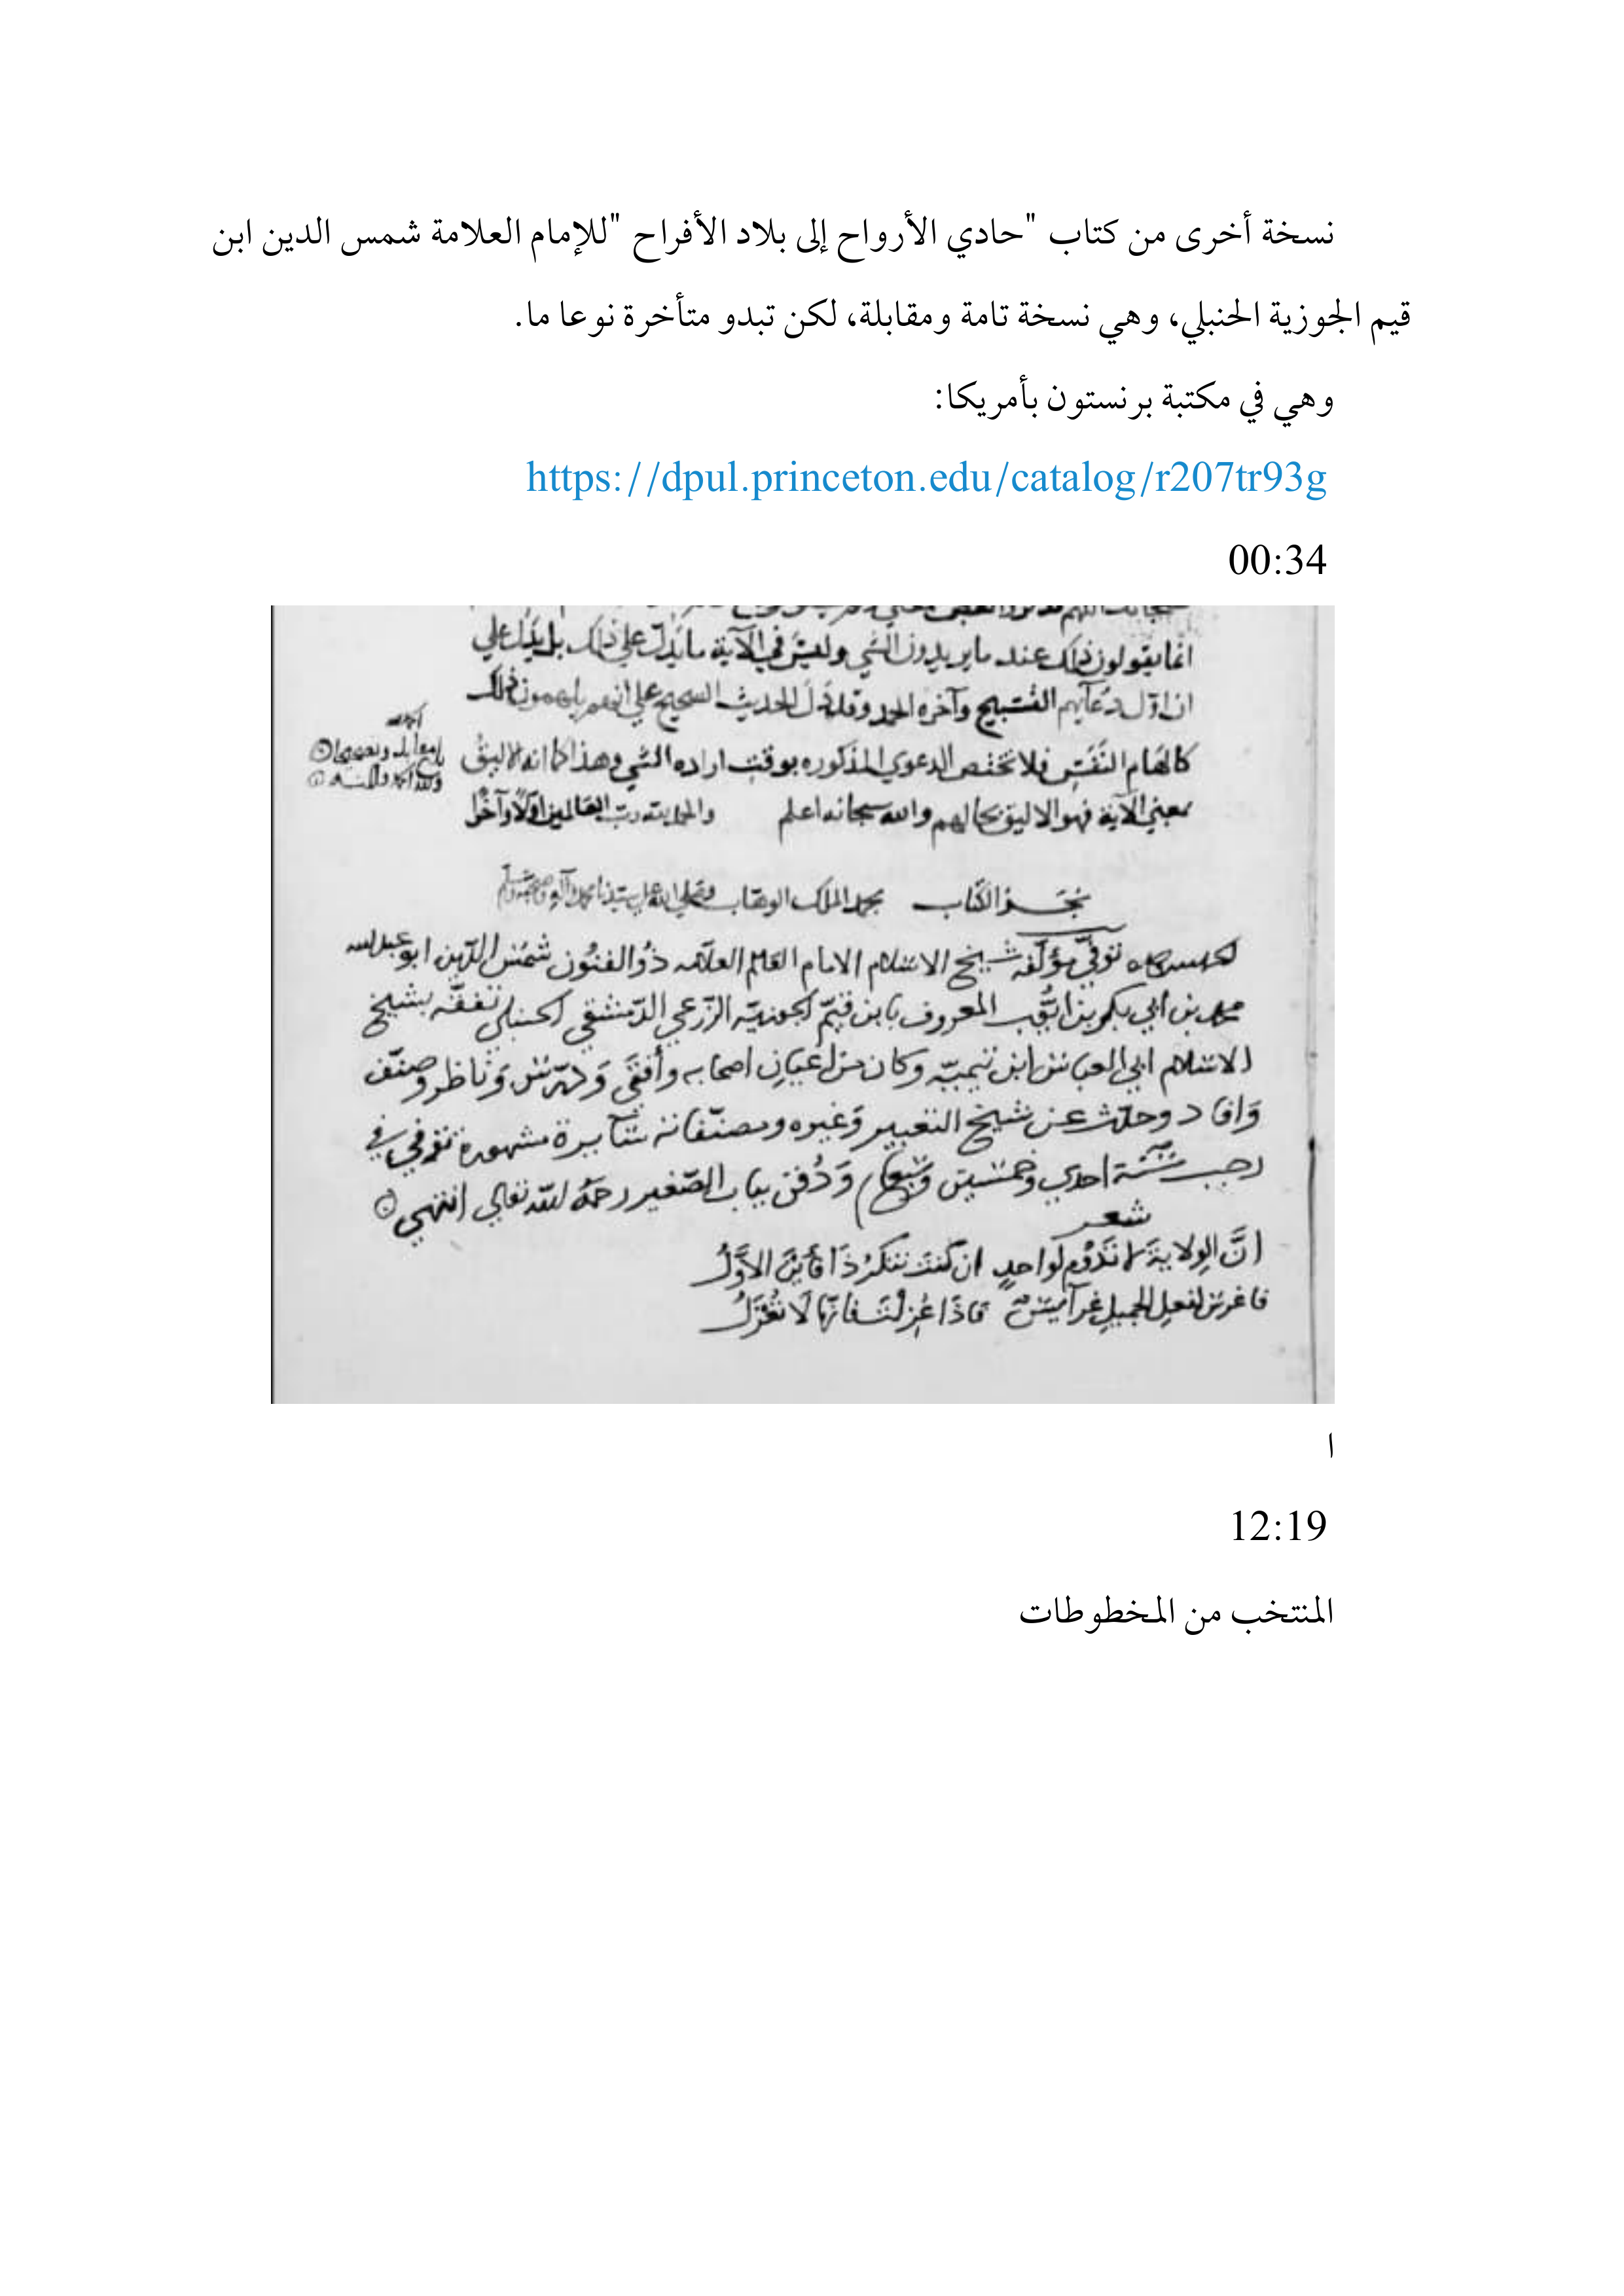 نسخة أخرى من كتاب "حادي الأرواح إلى بلاد الأفراح "للإمام العلامة شمس الدين ابن
قيم الجوزية الحنبلي، وهي نسخة تامة ومقابلة، لكن تبدو متأخرة نوعا ما.
وهي في مكتبة برنستون بأمريكا:
https://dpul.princeton.edu/catalog/r207tr93g
00:34
انما يقولون ذلك عند ما يريدون الشي وليس في الآية ما يدل علي ذلك بل يدل علي
ان اول دعآيهم التسبيح وآخره الحمد وقد دل الحديث الصحيح علي انهم يلهمون ذلك
كالهام النفس فلا تختص الدعوي المذكوره بوقت اراده الشي وهذا كما انه الاليق
بمعني الآية فهو الاليق بحالهم والله سبحانه اعلم والحمد لله رب العالمين اولا وآخرا
نجز الكتاب بحمد الملك الوهاب وصلي الله علي سيدنا محمد وآله وصحبه وسلم
توفي مؤلفه شيخ الاسلام الامام العالم العلامه ذو الفنون شمس الدين ابو عبد الله
محمد بن ابي بكر بن ايوب المعروف بابن قيم الجوزيه الزرعي الدمشقي الحنبلي تفقه بشيخ
الاسلام ابي العباس ابن تيميه وكان من اعيان اصحابه وأفتى وَدرّس وَناظر وصنّف
وَافاد وحدّث عن شيخ التعبير وَغيره ومصنّفاته سآيرة مشهورة توفي في
رجب سنة احدي وخمسين وسبعماية وَدُفن بباب الصّغير رحمهُ الله تعالي انتهي
شعر
انَّ الوِلايةَ لا تَدُوم لواحدٍ ان كنت تنكرُ ذَا فأَينَ الأوَّلُ
فاغرس لفعلِ الجميلِ غرآيسً فاذَا عُزِلْتَ فانّها لَا تُعْزَلُ
ا
12:19
المنتخب من المخطوطات